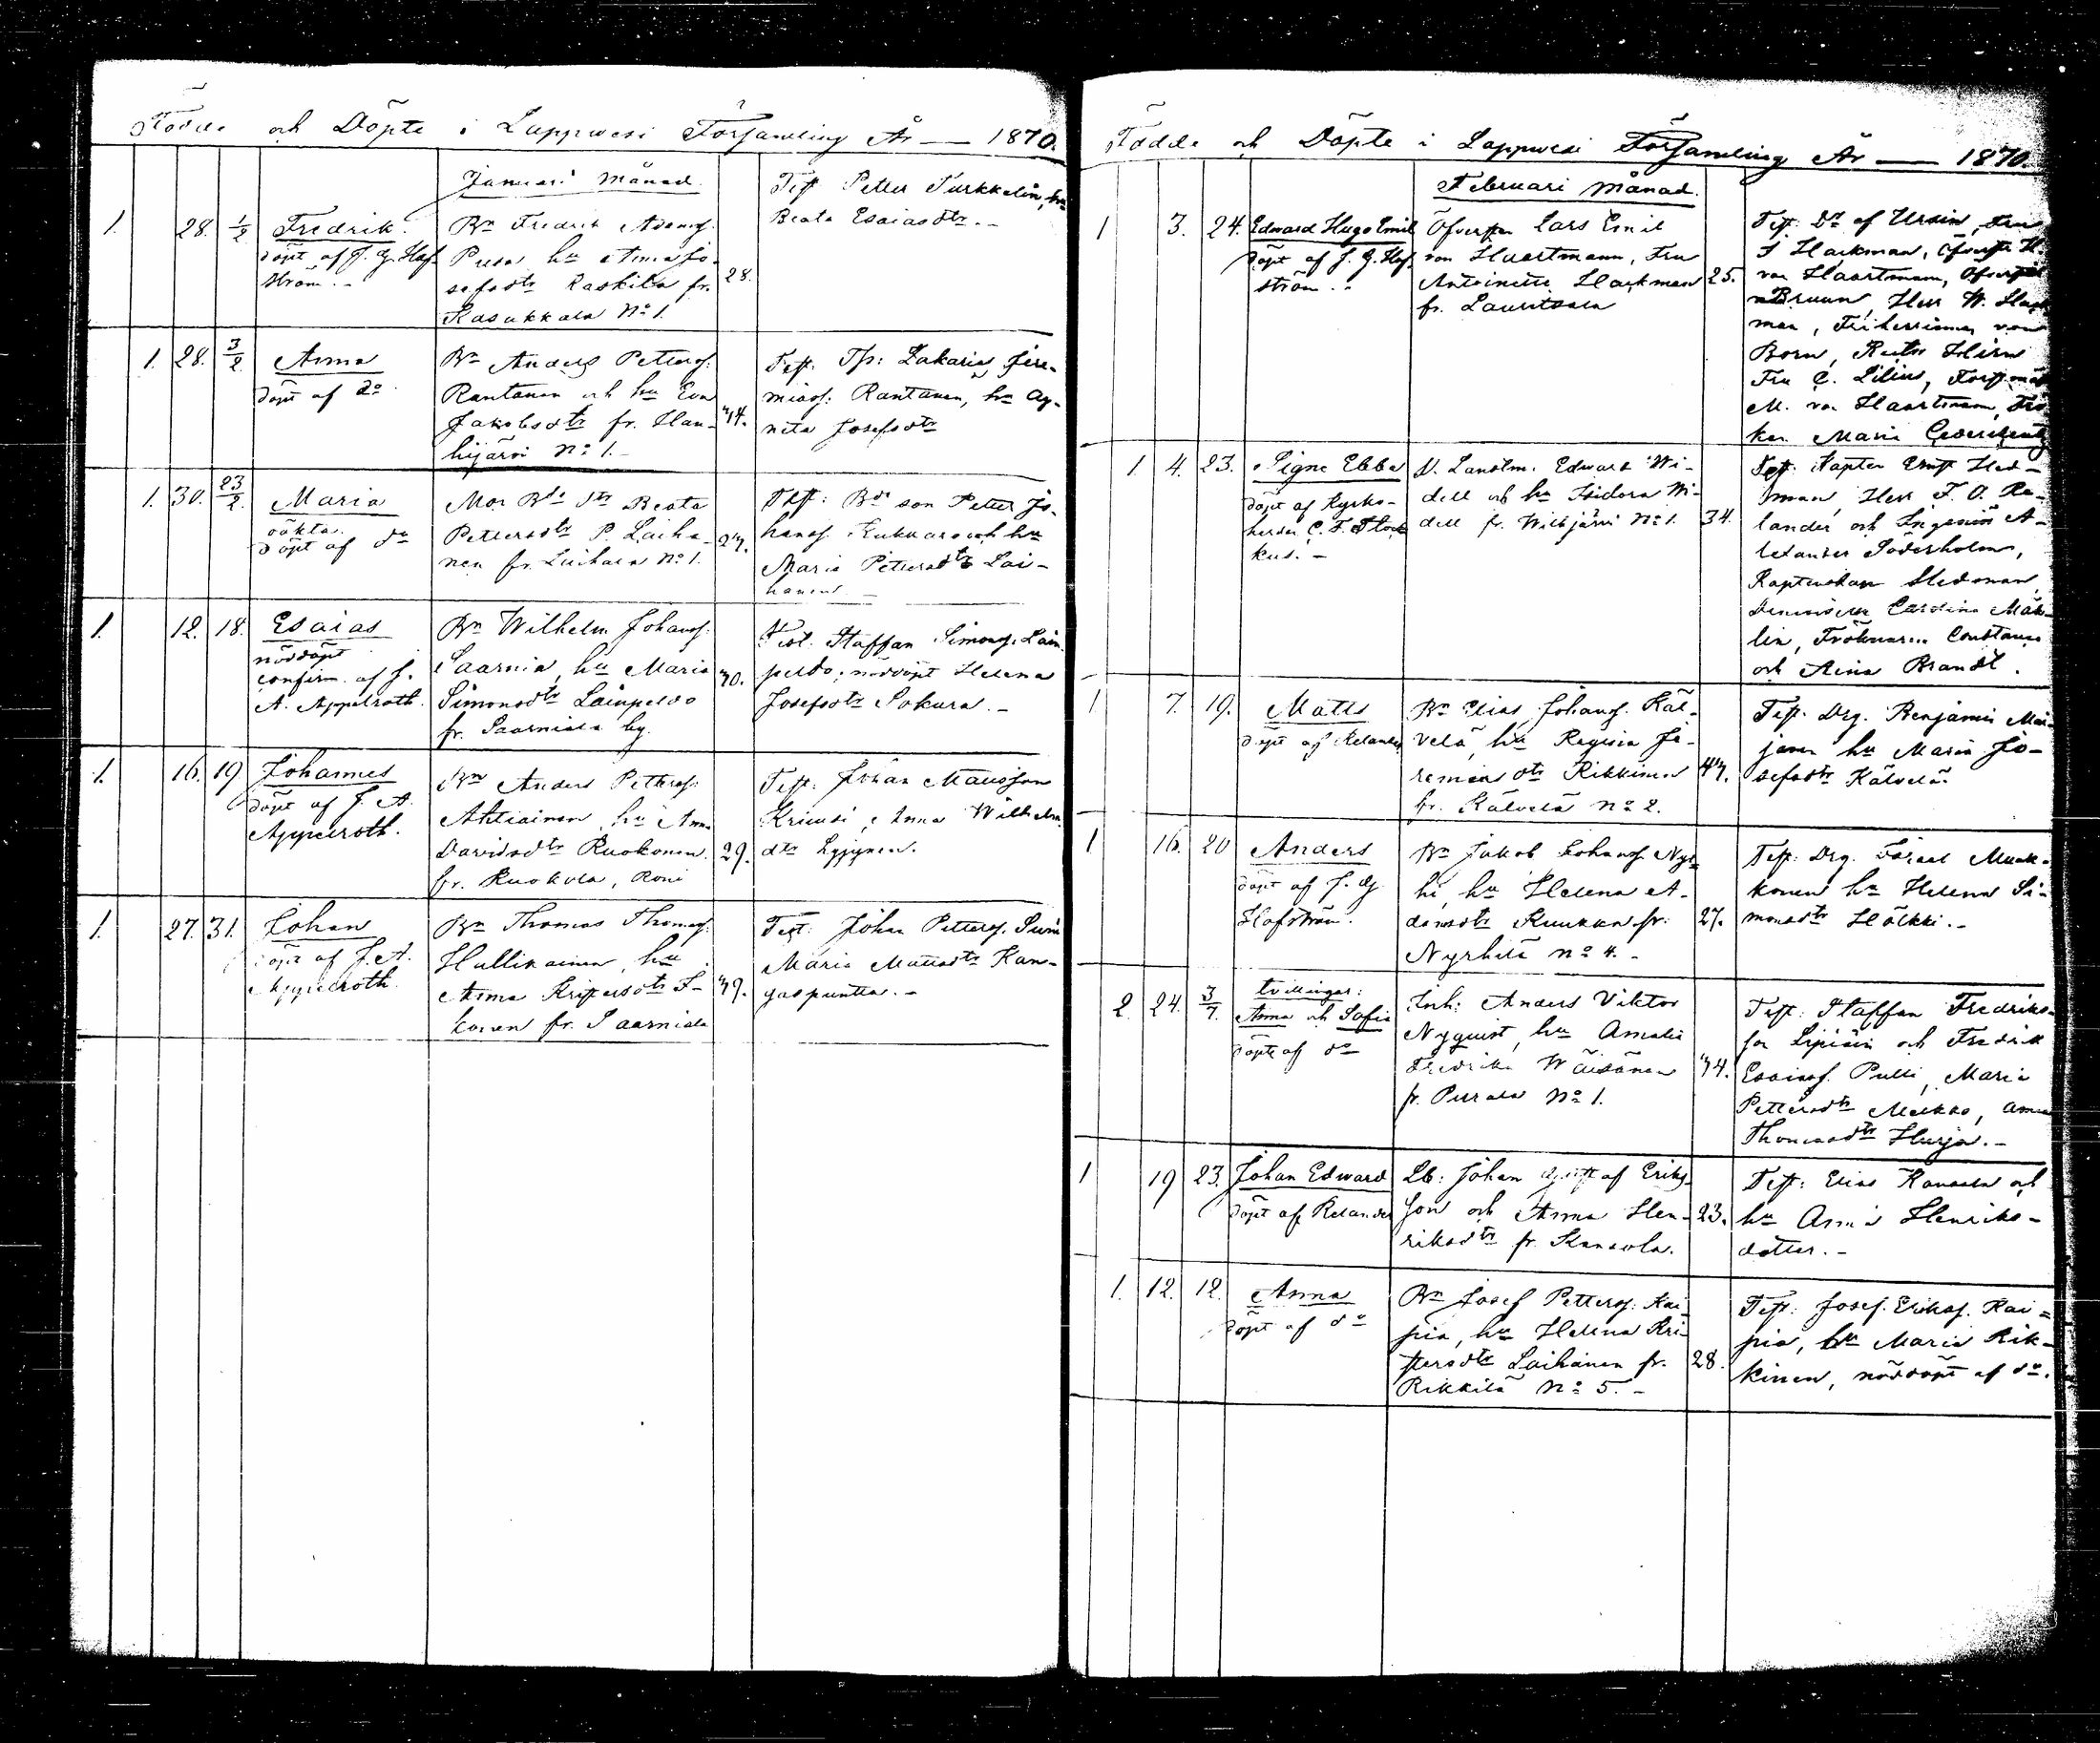 Födde och Döpte i Lappwesi Församling År — 1870.
Januari Månad.
1. 28. 1/2 Fredrik.
döpt af J. G. Hof-
ström. -
Bn Fredrik Adamss.
Pusa hu Anna Jo-
sefsdtr Raskila fr.
Kasukkala No 1.
28.
Test Petter Purkkelin, hu
Beata Esaiasdtr. -
1. 28. 3/2 Anna
döpt af do
Bn Anders Petterss.
Rantanen och hu Eva
Jakobsdtr fr. Han-
hijärvi No 1. -
44.
Test. Tp: Zakarias Jere-
miass. Rantanen, hu Ag-
neta Josefsdtr
1. 30. 23/2. Maria
oäkta.
döpt af do
Mor Bde dtr Beata
Pettersdtr P. Laiha-
nen fr. Laihala No 1.
27.
Test: Bde son Petter Jo-
hanss. Kukkaro och hu
Maria Pettersdtr Lai-
hanen. -
1. 12. 18. Esaias
nöddöpt
confirm. af J.
A. Appelroth.
Bn Wilhelm Johanss.
Saarnia, hu Maria
Simonsdtr Lainpelto
fr. Saarniala by.
40.
Test. Staffan Simonss. Lain-
pelto; nöddöpt Helena
Josefsdtr Sakura. -
1. 16. 19 Johannes
döpt af J. A.
Appelroth.
Bn Anders Petterss.
Ahtiainen, hu Anna
Davidsdtr Ruokonen.
fr. Ruokola, Roni
29.
Test. Johan Mattsson
Kriuusi, Anna Wilhelm
dtr Lyjynen.
1. 27. 31. Johan
döpt af J. A.
Appelroth.
Bn Thomas Thomass.
Hullikainen, hu
Anna Kristersdtr I-
konen fr. Saarniala
49.
Test: Johan Petterss. Suni
Maria Mattsdtr Kan-
gaspuntta. -
Födde och Döpte i Lappwesi Församling År — 1870.
Februari Månad.
1 3. 24. Edward Hugo Emil
döpt af J. G. Hof-
ström. -
Öfversten Lars Emil
von Haartmann, Fru
Antoinette Hackman
fr. Lauritsala
25.
Test. Dr af Ursin, Fru
J Hackman, Öfverste H.
von Haartman, Öfverste
Bruun, Herr W. Hack-
man, Friherrinnan von
Born, Ruth Hirn
Fru C. Lilius, Forstmäst
M. von Haartman, Frö-
ken Maria Cedercreutz
1 4. 23. Signe Ebba
döpt af kyrko-
herden C. F. Stock-
kus. -
V. Landtm. Edward Wi-
dell och hu Isidora Wi-
dell fr. Wilkjärvi No 1.
34.
Test. Kapten Ernst Hed-
man, Herr F. O. Re-
lander och Ingeniör A-
lexander Söderholm,
Kaptenskan Hedman,
Demoisellen Carolina Mäk-
lin, Fröknarna Constance
och Aina Brandt.
1 7. 19. Matts
döpt af Relander
Bn Elias Johanss. Käl-
velä, hu Regina Je-
remiasdtr Rikkinen
fr. Kälvelä No 2.
44.
Test. Drg. Benjamin Mai-
janen hu Maria Jo-
sefsdtr Kälvelä
1 16. 20 Anders
döpt af J. G
Hofström.
Bn Jakob Johanss. Nyr-
hi, hu Helena A-
damsdtr Kuukan fr.
Nyrhilä No 4. -
27.
Test. Drg. Israel Muuk-
konen hu Helena Si-
monsdtr Hölkki. -
2. 24. 3/7. tvillingar:
Anna och Sofia
döpte af do
Inh: Anders Viktor
Nyquist, hu Amalia
Fredrika Wäisänen
fr. Purala No 1.
44.
Test: Staffan Fredriks-
son Lipiäin och Fredrik
Esaiass. Pulli, Maria
Pettersdtr Meikko, Anna
Thomasdtr Hurja. -
1 19 23. Johan Edward
döpt af Relander
Lb: Johan Gustaf Eriks-
son och Anna Hen-
riksdtr fr. Kansola.
23.
Test: Elias Kansola och
hu Anna Henriks-
dotter. -
1. 12. 12. Anna
döpt af do
Bn Josef Petterss. Kai-
pia, hu Helena Kri-
stersdtr Laihanen fr.
Rikkilä No 5. -
28.
Test: Josef Erikss. Kai-
pia, hu Maria Rik-
kinen, nöddöpt af do.